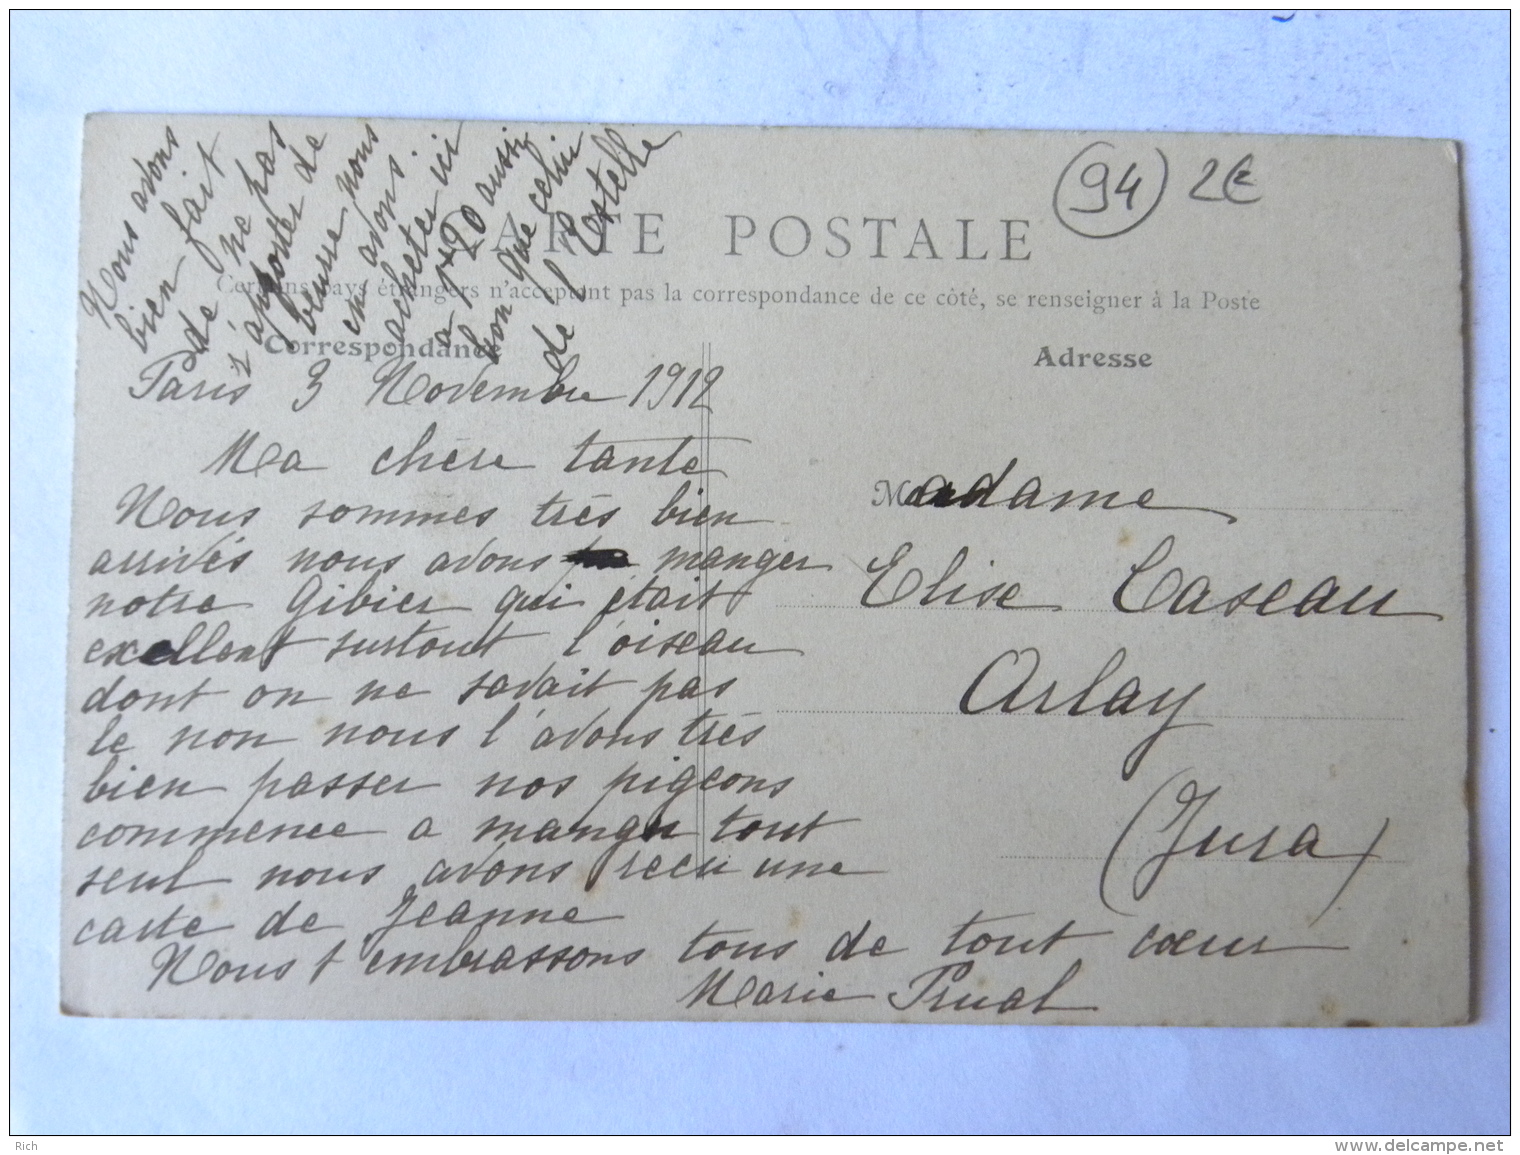 Nous avons
bien fait
de ne pas
s'apporter de
beurre nous
en avons
acheter ici
a 1+20 aussi
bon que celui
de l'Estelle
94
2€
CARTE POSTALE
Certains pays étrangers n'acceptent pas la correspondance de ce côté, se renseigner à la Poste
Correspondance
Adresse
Paris 3 Novembre 1912
Ma chère tante
Nous sommes très bien
arrivés nous avons manger
notre Gibier qui était
excellent surtout l'oiseau
dont on ne savait pas
le non nous l'avons très
bien passer nos pigeons
commence a manger tout
seul nous avons recu une
carte de Jeanne
Nous t embrassons tous de tout cœur
Marie Prual
Madame
Elise Caseau
Arlay
(Jura)
Rich
www.delcampe.net